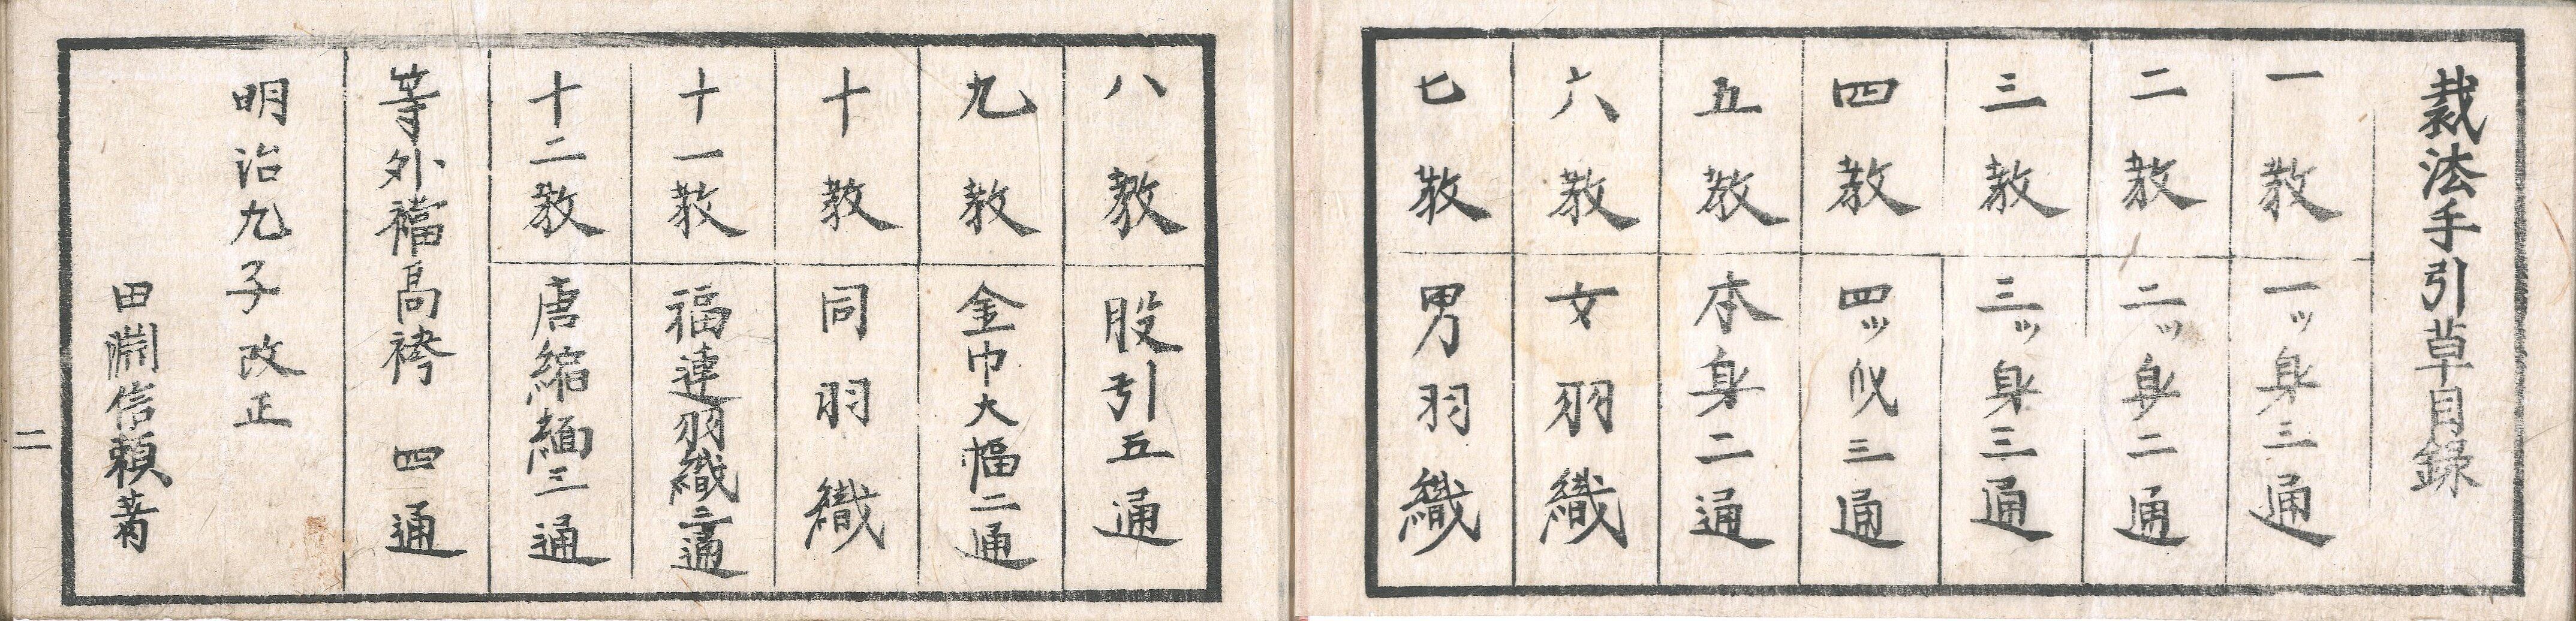 裁法手引草目録
一教 一ッ身三通
二教 二ッ身二通
三教 三ッ身三通
四教 四ッ身三通
五教 本身二通
六教 女羽織
七教 男羽織
八教 股引五通
九教 金巾大幅二通
十教 同羽織
十一教 福連羽織二通
十二教 唐縮緬三通
等外襠高袴 四通
明治九子改正
田淵信頼著
二